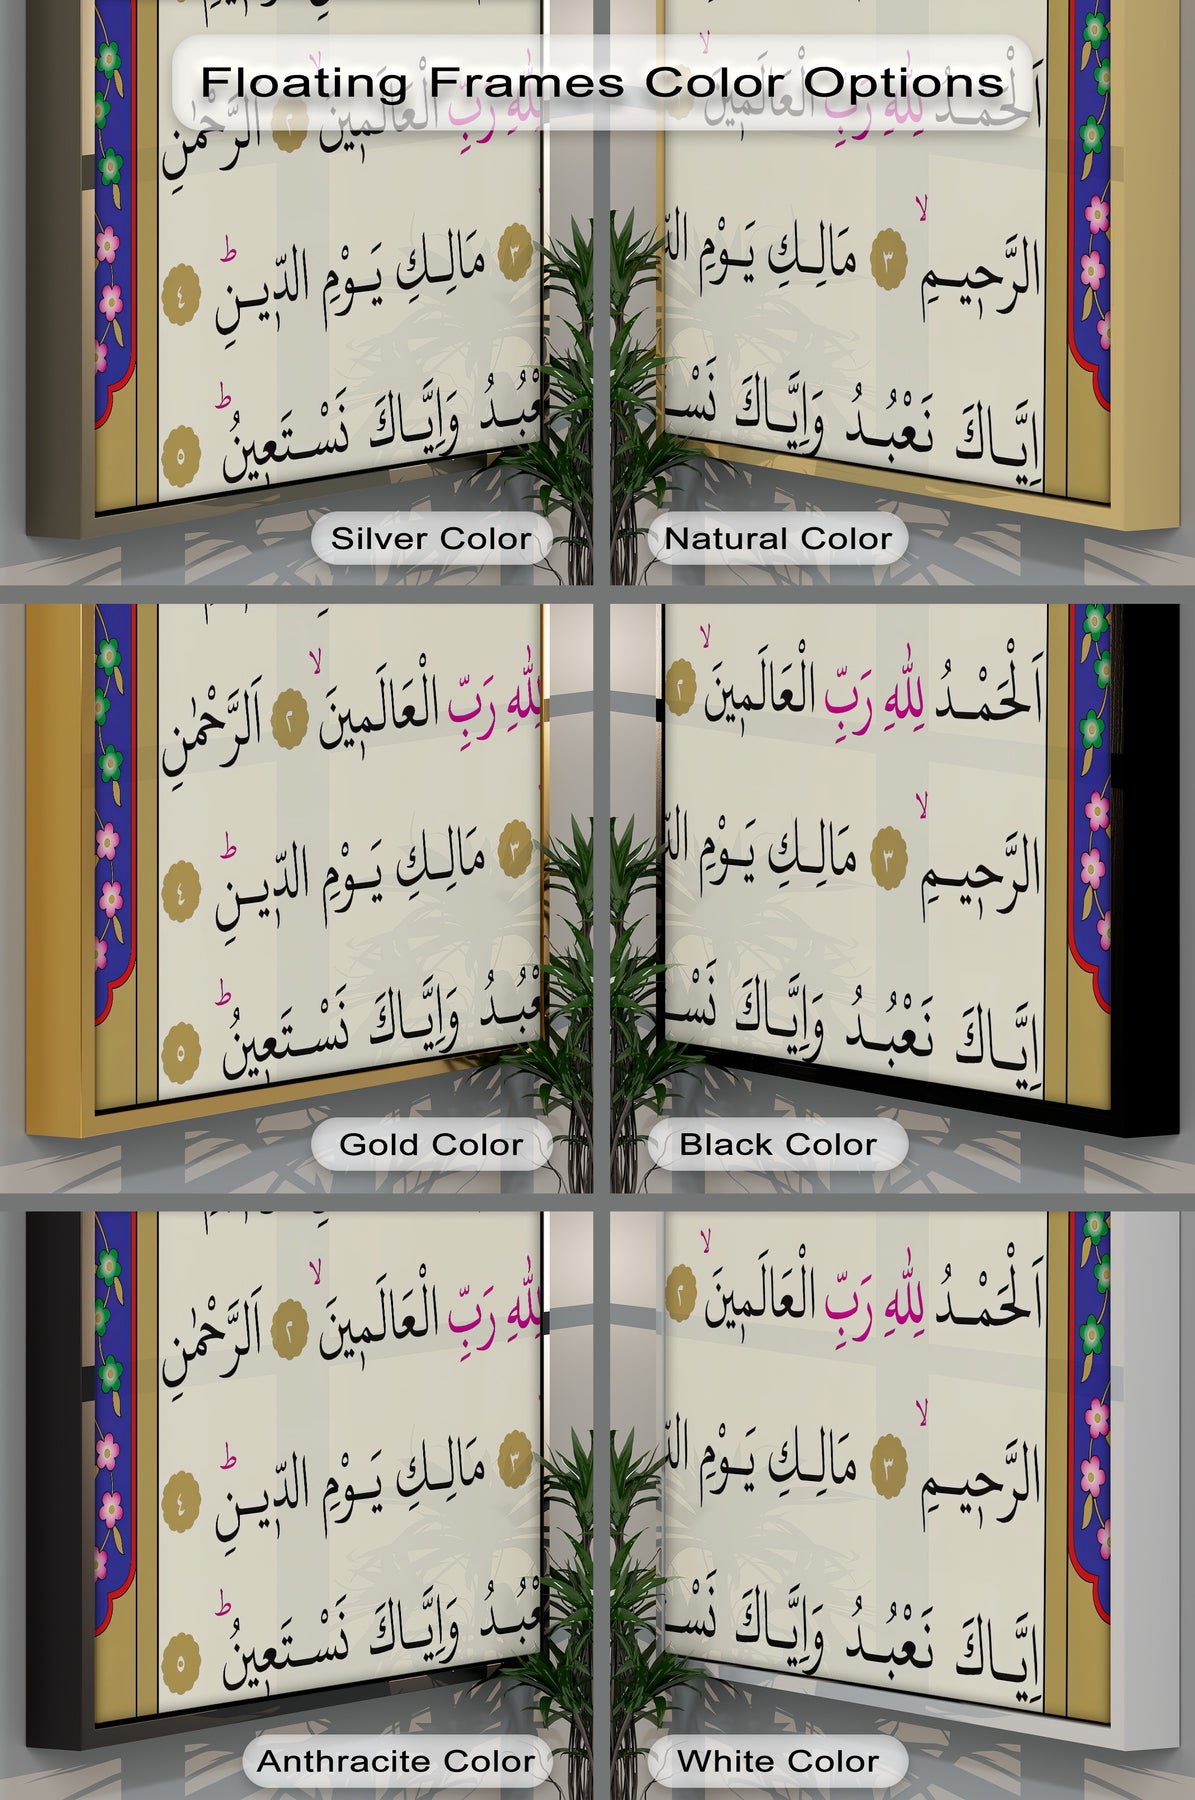 Floating Frames Color Options
لِلّٰهِ رَبِّ الْعَالَمِينَۙ ٢ اَلرَّحْمٰنِ
٣ مَالِكِ يَوْمِ الدِّينِؕ ٤
عْبُدُ وَاِيَّاكَ نَسْتَعِينُؕ ٥
Silver Color
اَلْحَمْدُ لِلّٰهِ رَبِّ الْعَالَمِينَۙ ٢
الرَّحِيمِۙ ٣ مَالِكِ يَوْمِ الدّ
اِيَّاكَ نَعْبُدُ وَاِيَّاكَ نَسْ
Natural Color
لِلّٰهِ رَبِّ الْعَالَمِينَۙ ٢ اَلرَّحْمٰنِ
٣ مَالِكِ يَوْمِ الدِّينِؕ ٤
عْبُدُ وَاِيَّاكَ نَسْتَعِينُؕ ٥
Gold Color
اَلْحَمْدُ لِلّٰهِ رَبِّ الْعَالَمِينَۙ ٢
الرَّحِيمِۙ ٣ مَالِكِ يَوْمِ الدّ
اِيَّاكَ نَعْبُدُ وَاِيَّاكَ نَسْ
Black Color
لِلّٰهِ رَبِّ الْعَالَمِينَۙ ٢ اَلرَّحْمٰنِ
٣ مَالِكِ يَوْمِ الدِّينِؕ ٤
عْبُدُ وَاِيَّاكَ نَسْتَعِينُؕ ٥
Anthracite Color
اَلْحَمْدُ لِلّٰهِ رَبِّ الْعَالَمِينَۙ ٢
الرَّحِيمِۙ ٣ مَالِكِ يَوْمِ الدّ
اِيَّاكَ نَعْبُدُ وَاِيَّاكَ نَسْ
White Color